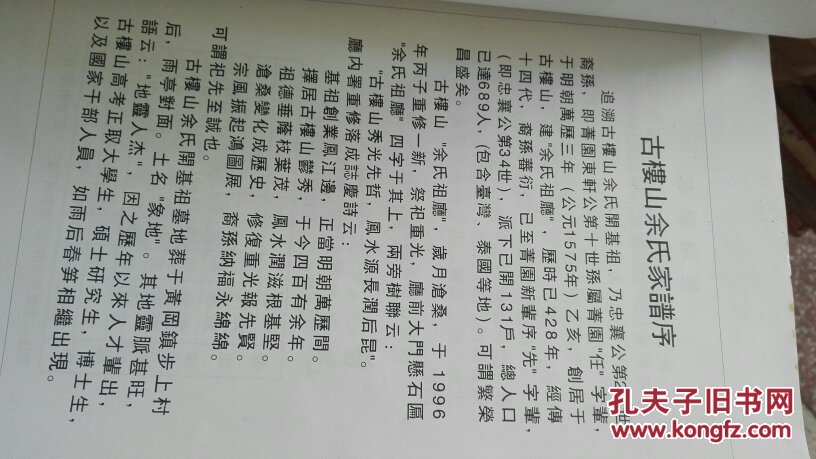 古樓山余氏家譜序
追溯古樓山余氏開基祖，乃忠襄公第2 世
裔孫，即菁園東軒公第十世孫屬菁園"任"字輩，
于明朝萬歷三年（公元1575年）乙亥，創居于
古樓山，建"余氏祖廳"，歷時已428年，經傳
十四代，裔孫蕃衍，已至菁園新輩序"先"字輩，
（即忠襄公第34世），派下已開131戶，總人口
已達689人，（包含臺灣、泰國等地）。可謂繁榮
昌盛矣。
古樓山"余氏祖廳"，歲月滄桑，于1996
年丙子重修一新，祭祀重光，廳前大門懸石匾
"余氏祖廳"四字于其上，兩旁樹聯云：
"古樓山秀光先哲，鳳水源長潤后昆"。
廳内署重修落成誌慶詩云：
基祖創業鳳江邊，正當明朝萬歷間。
擇居古樓山鬱秀，于今四百有余年。
祖德垂蔭枝葉茂，鳳水潤滋根基堅。
滄桑變化成歷史，修復重光報先賢。
宗風振起鴻圖展，裔孫納福永綿綿。
可謂祀先至誠也。
古樓山余氏開基祖墓地葬于黃岡鎮步上村
后，雨亭對面。土名"象地"。其地靈脈甚旺，
語云："地靈人杰"，因之歷年以來人才輩出，
古樓山高考正取大學生，碩士研究生，博士生，
以及國家干部人員，如雨后春笋相繼出現。
孔夫子旧书网
www.kongfz.com